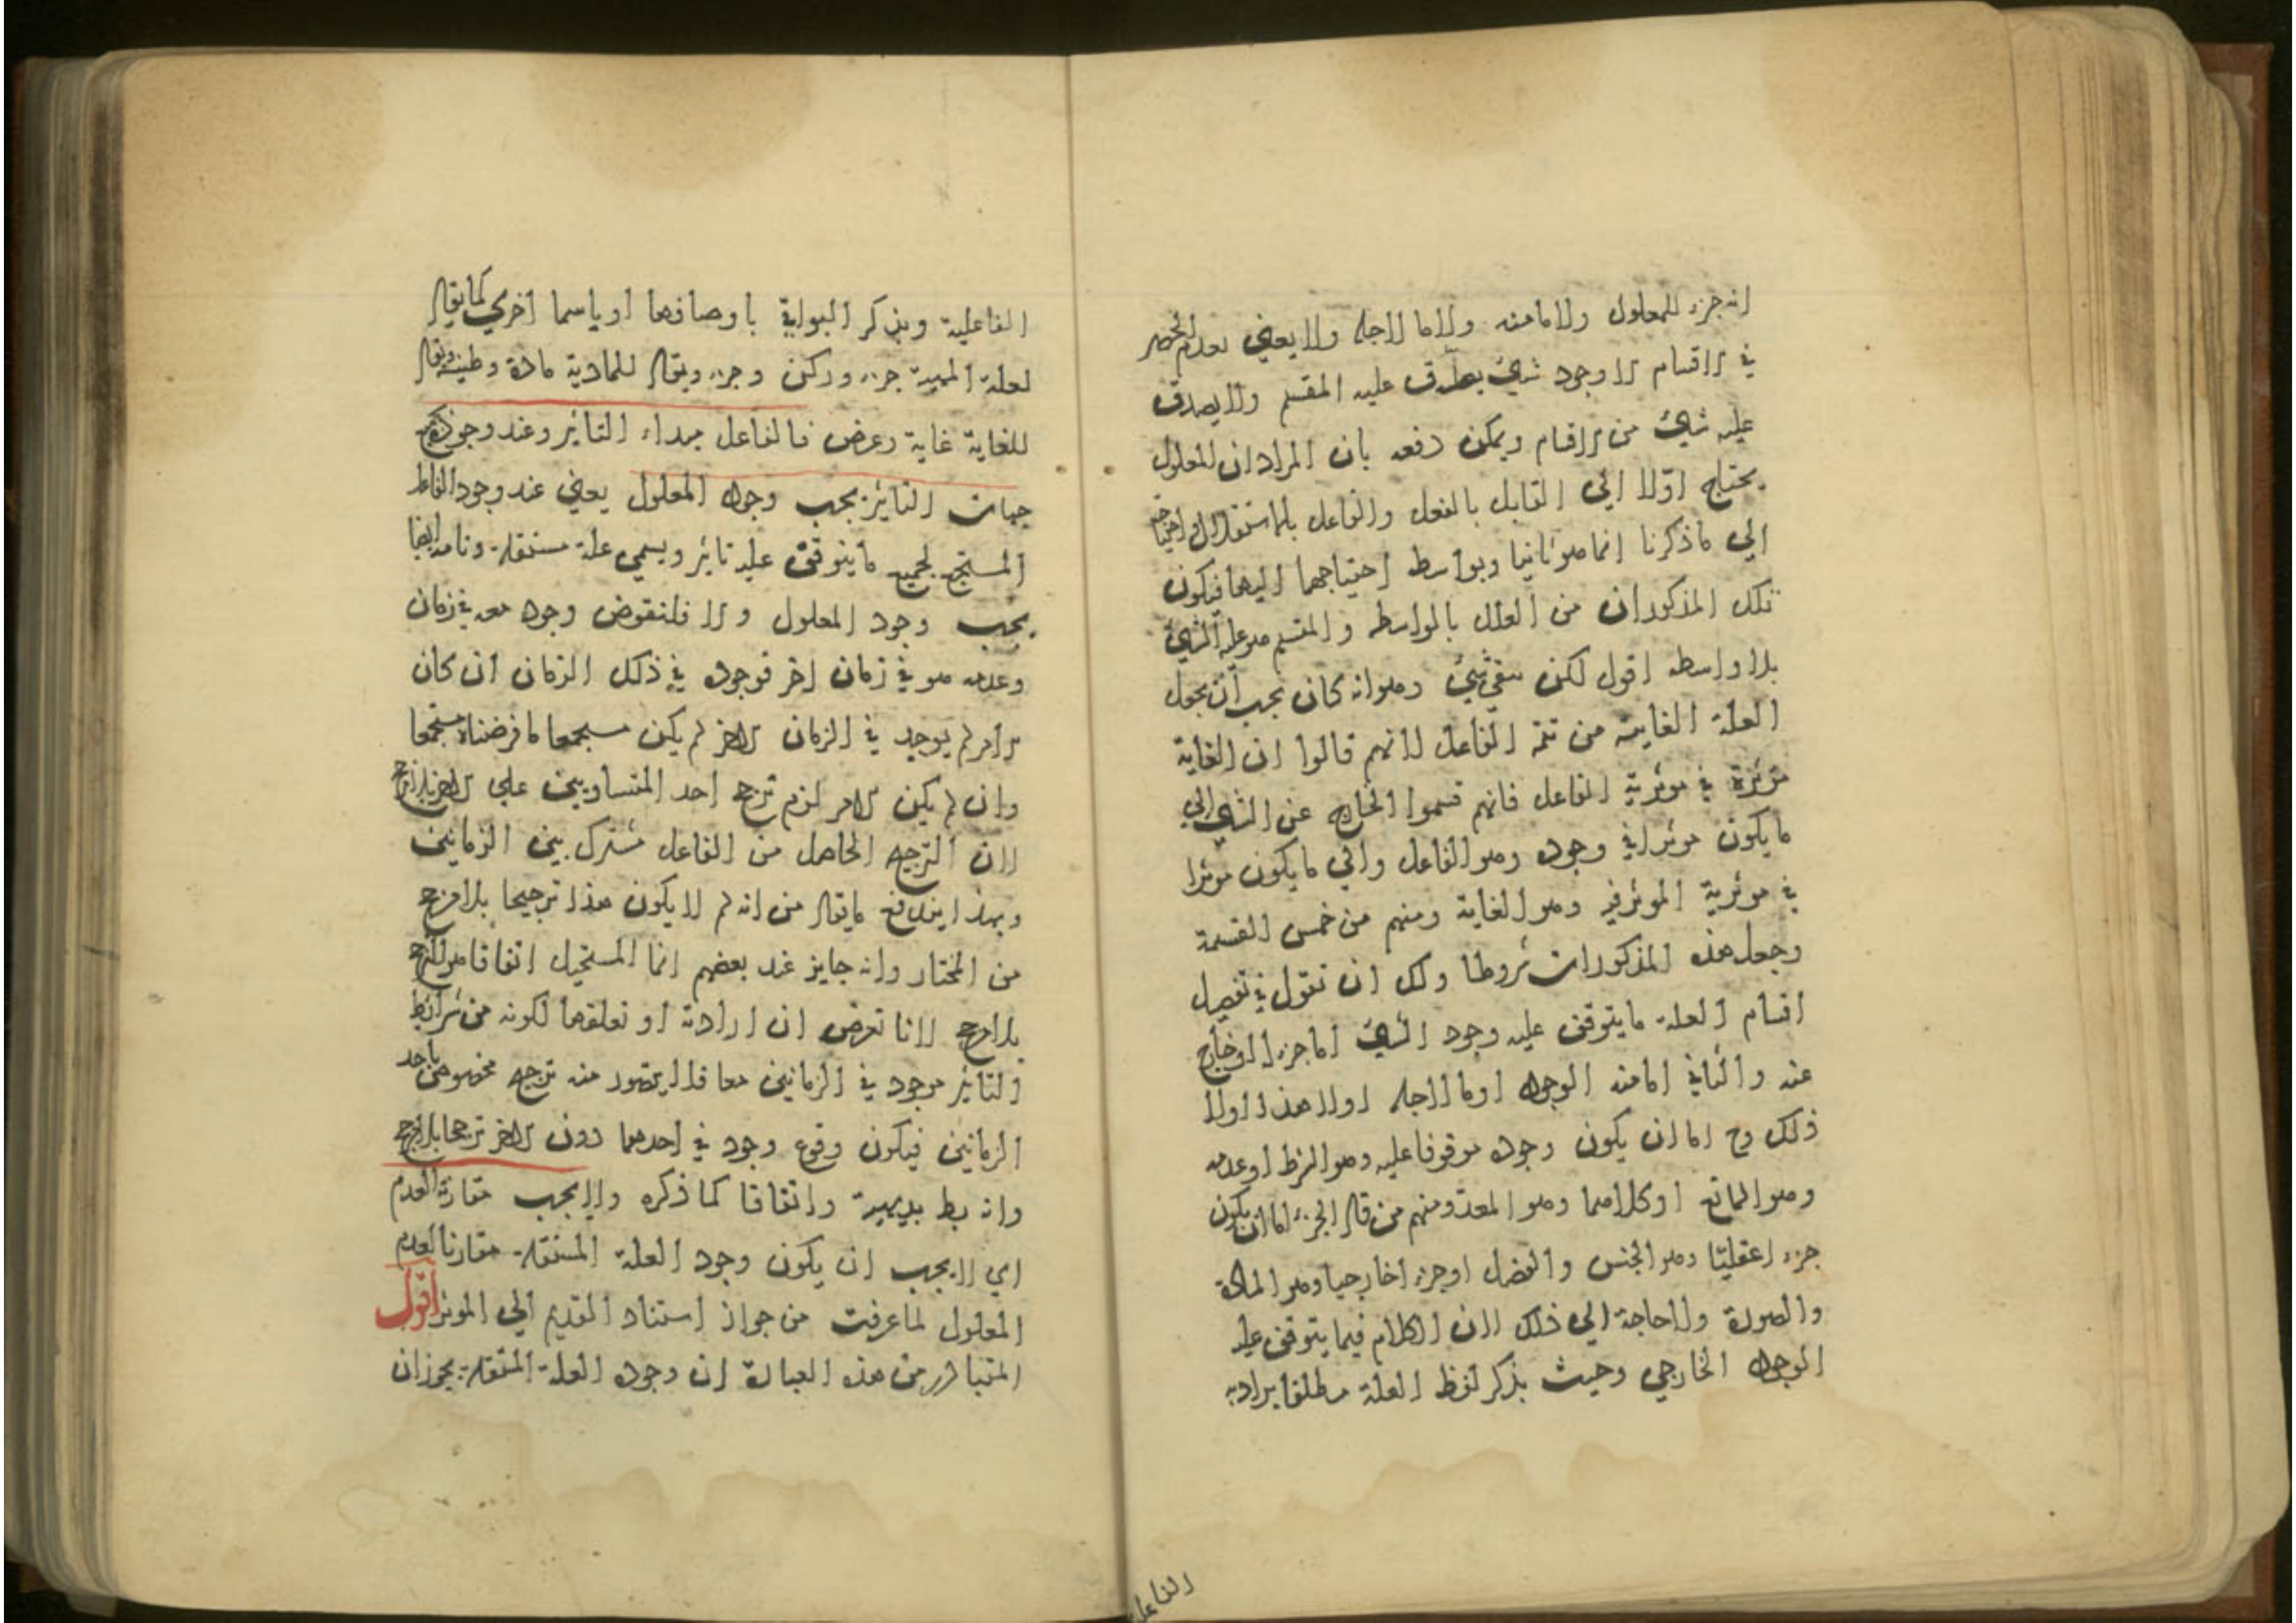 انه جزء للمعلول ولا مامنه ولا ما لاجله ولا يعني بعدم الحصر
في الاقسام الا وجود شيء يصدق عليه المقسم ولا يصدق
عليه شيء من الاقسام ويمكن دفعه بان المراد ان المعلول
يحتاج اولا الي القابل بالفعل والفاعل بالاستقلال
الي ما ذكرنا انما هو ثانيا وبواسطه احتياجهما اليها فيكون
تلك المذكوران من العلل بالواسطه والمقسم هو علة الشيء
بلا واسطه اقول لكن بقي شيء وهو انه كان يجب ان يجعل
العلة الغايية من تتمة الفاعل لانهم قالوا ان الغاية
موثرة في موثرية الفاعل فانهم قسموا الخارج عن الشيء الي
ما يكون موثرا في وجوده وهو الفاعل والي ما يكون موثرا
في موثرية الموثر فيه وهو الغاية ومنهم من خمس القسمة
وجعل هذه المذكورات شروطا ولك ان تقول في تفصيل
اقسام العلة ما يتوقف عليه وجود الشيء اما جزء له او خارج
عنه والثاني اما منه الوجود او ما لاجله او لا هذا ولا
ذلك وح اما ان يكون وجوده موقوفا عليه وهو الشرط او عدمه
وهو المانع او كلاهما وهو المعد ومنهم من قال الجزء اما ان يكون
جزء اعقليا وهو الجنس والفصل او جزء اخارجيا وهو المادة
والصورة ولا حاجة الي ذلك لان الكلام فيما يتوقف عليه
الوجود الخارجي وحيث يذكر لفظ العلة مطلقا يراد به
الفاعلية
الفاعلية ويذكر البواقي باوصافها او باسما اخري كما يقال
لعلة المهية جزء وركن وجزء ويقال للمادية مادة وطينة ويقال
للغاية غاية وغرض فالفاعل مبداء التاثير وعند وجوده بجميع
جهات التاثير يجب وجود المعلول يعني عند وجود الفاعل
المستجمع لجميع ما يتوقف عليه تاثيره ويسمي علة مستقلة وتامة ايضا
يجب وجود المعلول والا فلنفرض وجوده معه في زمان
وعدمه معه في زمان اخر فوجوده في ذلك الزمان ان كان
لامر لم يوجد في الزمان الاخر لم يكن مستجمعا ما فرضناه مستجمعا
وان لم يكن لامر لزم ترجح احد المتساويين علي الاخر بلا مرجح
لان الترجيح الحاصل من الفاعل مشترك بين الزمانين
وبهذا يندفع ما يقال من انه لم لا يكون هذا ترجيحا بلا مرجح
من المختار وانه جايز عند بعضهم انما المستحيل اتفاقا هو الترجح
بلا مرجح لانا نفرض ان ارادته او تعلقها لكونه من شرائط
التاثير موجود في الزمانين معا فلا يتصور منه ترجيح مخصوص باحد
الزمانين فيكون وقوع وجوده في احدهما دون الاخر ترجحا بلا مرجح
وانه بط بديهية واتفاقا كما ذكره ولا يجب مقارنة العدم
اي لا يجب ان يكون وجود العلة المستقلة مقارنا لعدم
المعلول لما عرفت من جواز استناد القديم الي الموثر اقول
المتبادر من هذه العبارة ان وجود العلة المستقلة يجوز ان